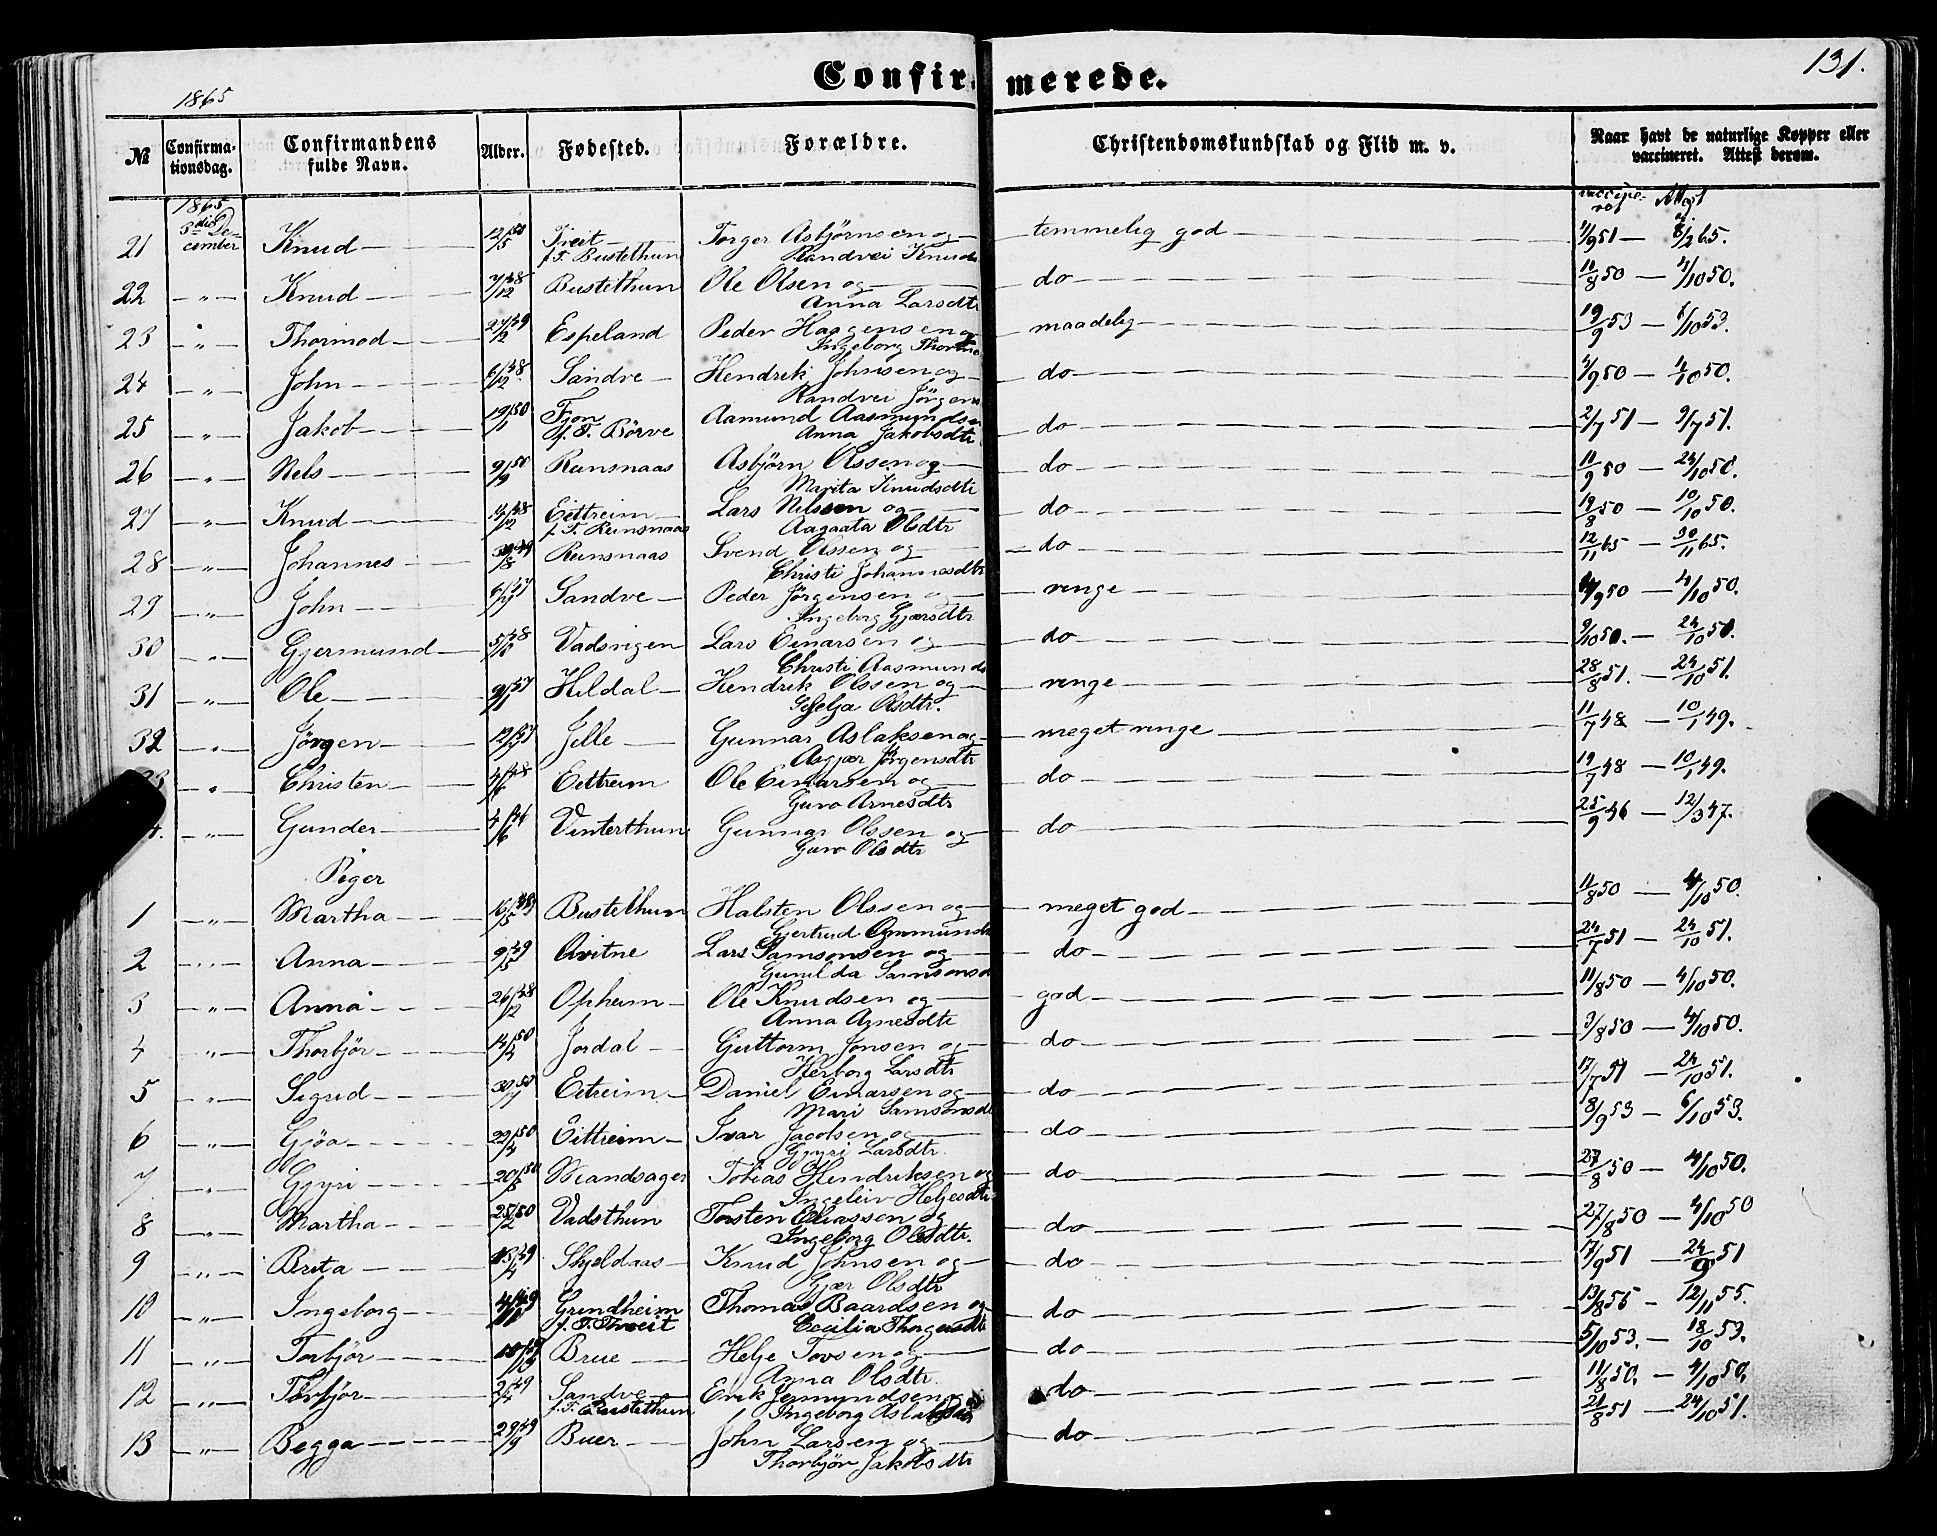 131.
Confirmerede.
1865
№ Confirma-tionsdag. Confirmandens fulde Navn. Alder. Fødested. Forældre. Christendomskundskab og Flid m. v. Naar havt de naturlige Kopper eller vaccineret. Attest derom.
1865 3die December
21 Knud 12/5 Treit f. T. Bustethun Torger Asbjørnsen og Randvei Knuds temmelig god 4/9 51 — 8/2 65.
22 " Knud 7/12 48 Bustethun Ole Olsen og Anna Larsdtr do 11/8 50 — 4/10 50.
23 " Thormod 27/2 49 Espeland Peder Haagensen og Ingeborg maadelig 19/9 53 — 6/10 53.
24 " John 6/12 48 Sandve Hendrik Johnsen og Randvei Jørgens do 4/9 50 — 4/10 50.
25 " Jakob 19/1 50 Fjon f. T. Børve Aamund Aasmundsen Anna Jakobsdtr do 2/7 51 — 9/7 51.
26 " Nels 9/9 50 Runsnaas Asbjørn Olssen og Marita Knudsdtr do 11/9 50 — 24/10 50.
27 " Knud 48 Eittreim f. T. Runsnaas Lars Nelssen og Aagaata Olsdtr do 19/8 50 — 10/10 50.
28 " Johannes 49 Runsnaas Svend Olssen og Christi Johannesdtr do 12/11 65 — 30/11 65.
29 " John Sandve Peder Jørgensen og Ingeborg Gjærsdtr ringe 4/9 50 — 4/10 50.
30 " Gjermund 48 Vadsvigen Lars Einarsen og Christi Aasmunds do 9/10 50. — 24/10 50.
31 " Ole Hildal Hendrik Olssen og Olsdtr. ringe 28/8 51. — 24/10 51.
32 " Jørgen Jelle Gunnar Aslaksen og Asgjær Jørgensdtr meget ringe 11/7 48 — 10/1 49.
" Christen 4/6 48 Eittreim Ole Einarsen og Guro Arnesdtr do 19/7 48 — 10/1 49.
" Gunder 4/6 46 Vinterthun Gunnar Olssen og Guro Olsdtr do 25/9 46 — 12/3 47.
Piger
1 " Martha 16/5 49 Bustethun Halsten Olssen og Gjertrud meget god 11/8 50 — 4/10 50.
2 " Anna 9/5 49 Qvitne Lars Samsonsen og Gunilda Samsonsd do 24/7 51 — 24/10 51.
3 " Anna 26/2 48 Opheim Ole Knudsen og Anna Arnesdtr god 11/8 50 — 4/10 50.
4 " Thorbjør 14/4 50 Jordal Guttorm Jonsen og Herborg Larsdtr do 3/8 50 — 4/10 50.
5 " Sigrid Eitreim Daniel Einarsen og Mari Samsonsd do 17/7 51 — 24/10 51.
6 " Gjøa 22/4 50 Eittreim Ivar Jacobsen og Gyri Larsdtr. do 8/9 53 — 6/10 53.
7 " Gjyri 20/5 50 Mandsager Tobias Hendriksen og Ingeleiv Heljesdtr do 27/8 50 — 4/10 50.
8 " Martha 25/2 50 Vadsthun Torsten Eliassen og Ingeborg Olsdtr. do 27/8 50 — 4/10 50
9 " Brita 13/4 49 Skjeldaas Knud Johnsen og Gjær Olsdtr do 17/9 51 — 24/9 51
10 " Ingeborg 4/11 49 Grindheim f. T. Threit Thomas Baardsen og Cecilia Thorgersdtr do 13/8 55 — 12/11 55.
11 " Torbjør Brue Helje Tovsen og Anna Olsdtr. do 5/10 53. — 18/10 53.
12 " Torbjør 2/4 49 Sandve f. T. Bustethun Erik Jermundsen og Ingeborg do 11/8 50. — 4/10 50.
13 " Begga 29/9 49 Buer John Larsen og Thorbjør Jakobsdtr do 21/8 51 — 24/10 51.